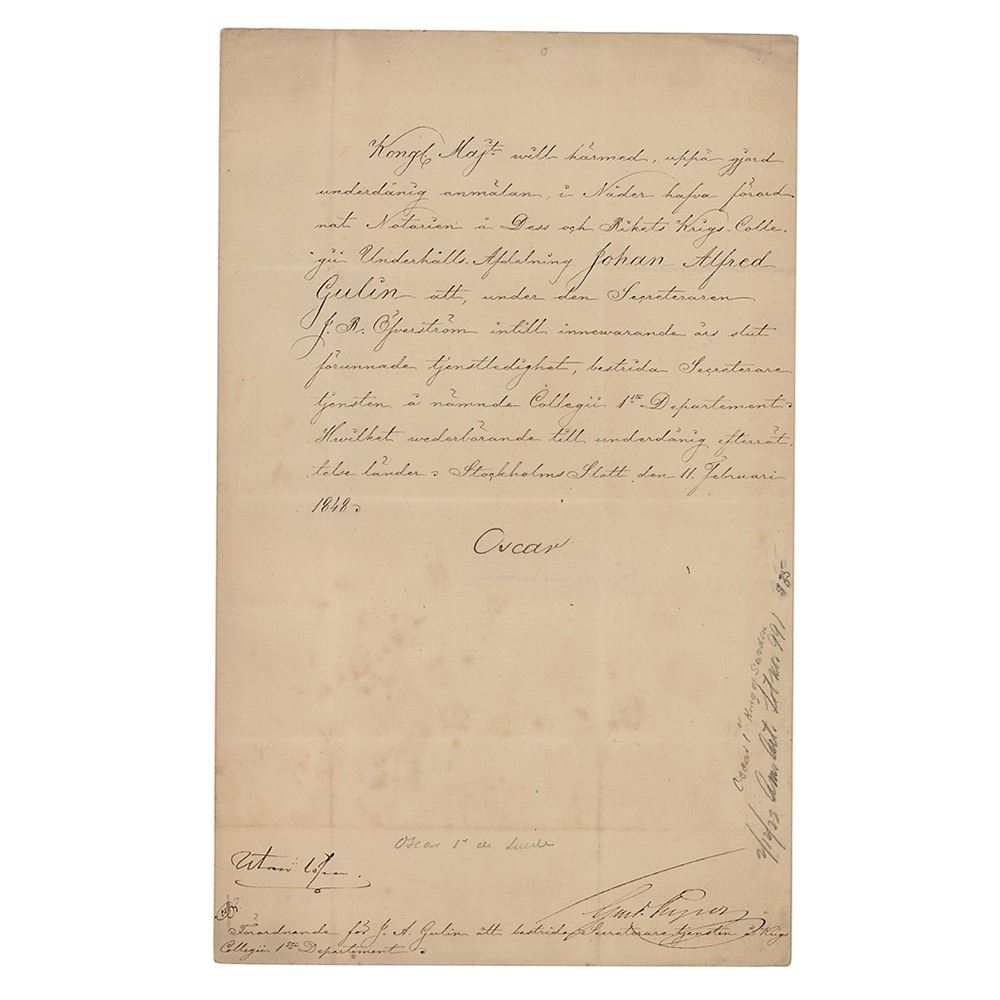 Kongl Majt. will härmed, uppå gjord
underdånig anmälan, i Nåder hafva förord-
nat Notarien å Dess och Rikets Krigs-Colle-
gii Underhålls-Afdelning Johan Alfred
Gulin att, under den Secreteraren
J. R. Öfverström intill innewarande års slut
förunnade tjenstledighet, bestrida Secreterare
tjensten å nämnde Collegii 1sta Departement.
Hwilket wederbörande till underdånig efterrät-
telse länder. Stockholms Slott den 11. Februari
1848.
Oscar
Oscar 1r King of Sweden
Lot No: 991
Oscar 1r de Suede
Utan
Förordnande för J. A. Gulin att bestrida Secreterare tjensten i Krigs
Collegii 1sta Departement.